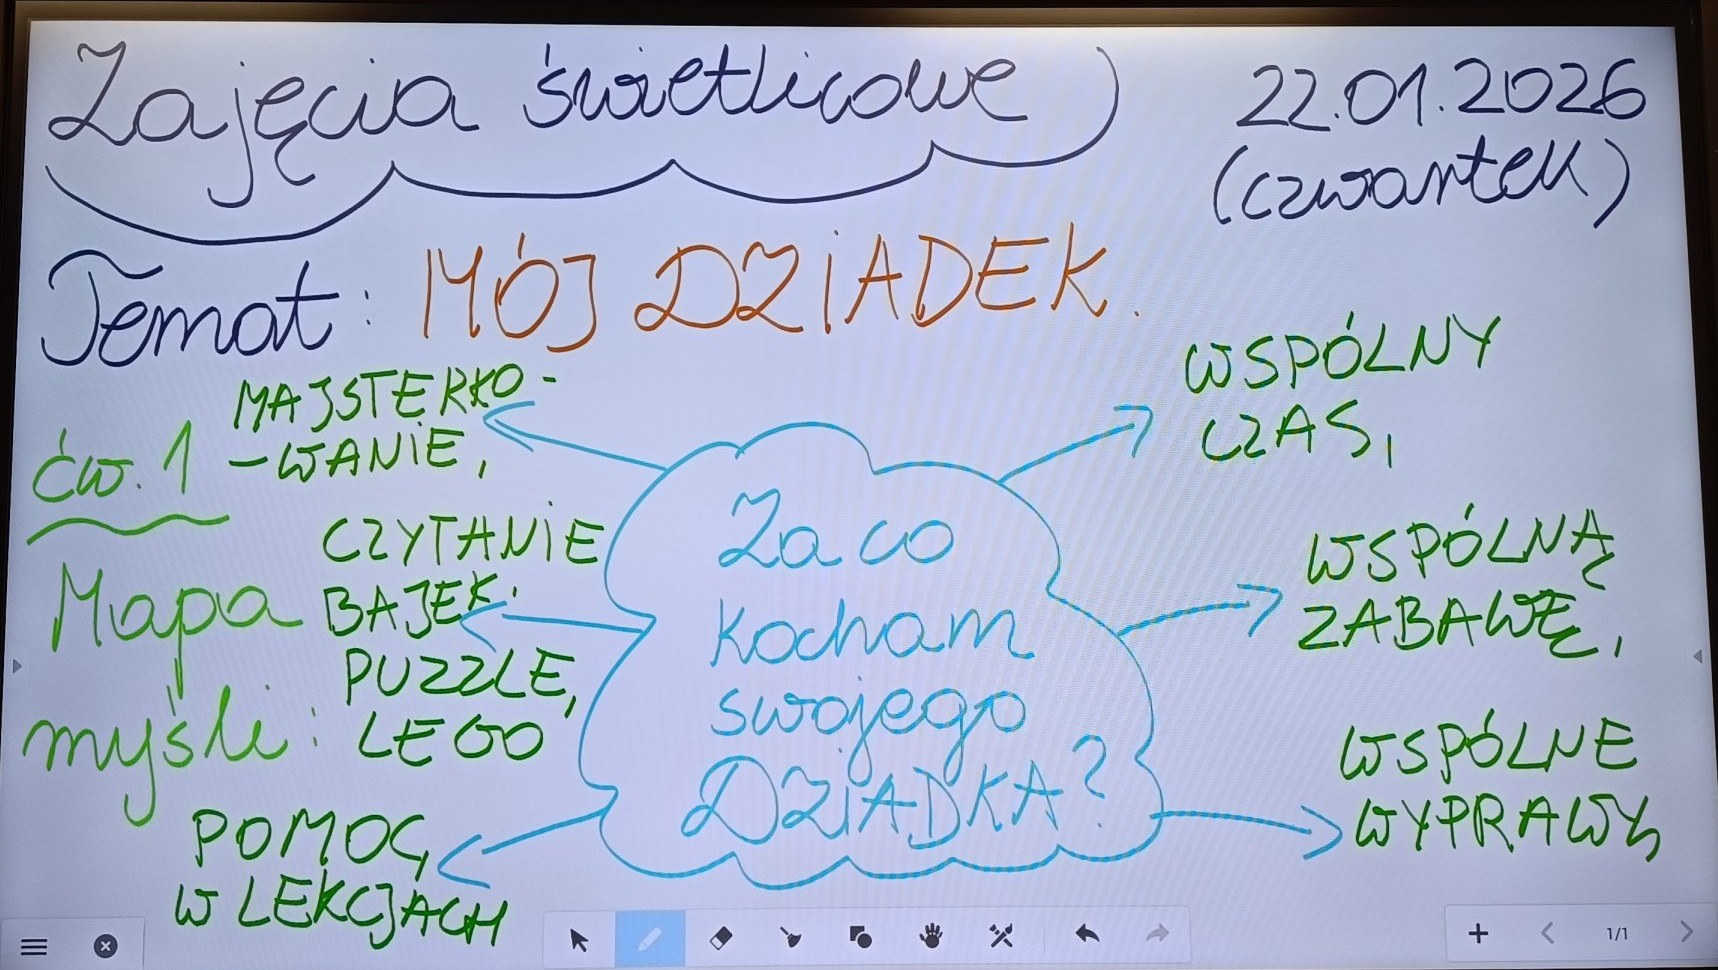 Zajęcia świetlicowe
22.01.2026
(czwartek)
Temat: MÓJ DZIADEK.
ćw. 1
Mapa
myśli:
MAJSTERKO-
-WANIE,
CZYTANIE
BAJEK.
PUZZLE,
LEGO
POMOC,
W LEKCJACH
Za co
kocham
swojego
DZIADKA?
WSPÓLNY
CZAS,
WSPÓLNĄ
ZABAWĘ,
WSPÓLNE
WYPRAWY,
1/1